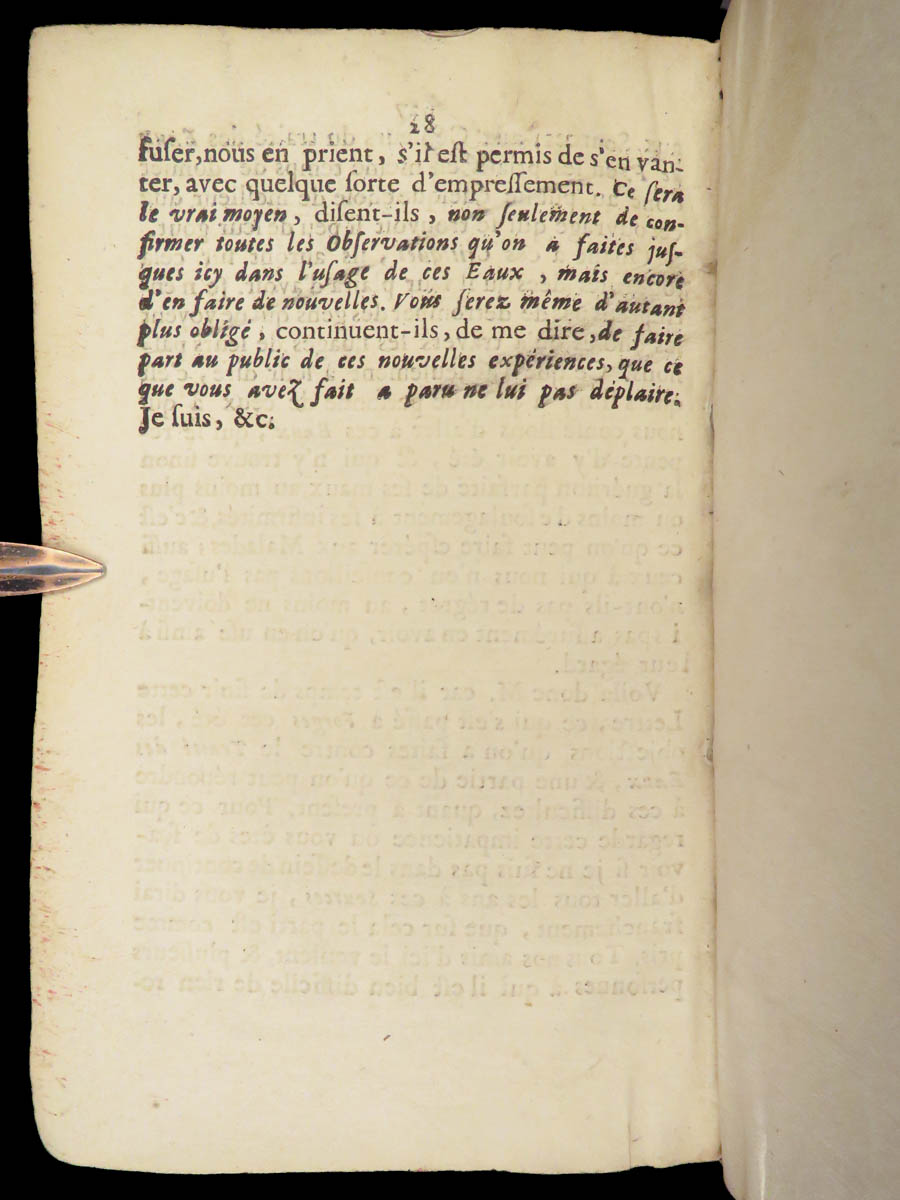 28
fuſer, nous en prient, s'il eſt permis de s'en van-
ter, avec quelque ſorte d'empreſſement. Ce ſera
le vrai moyen, diſent-ils, non ſeulement de con-
firmer toutes les Obſervations qu'on a faites juſ-
ques icy dans l'uſage de ces Eaux, mais encore
d'en faire de nouvelles. Vous ſerez même d'autant
plus obligé, continuent-ils, de me dire, de faire
part au public de ces nouvelles expériences, que ce
que vous avez fait a paru ne lui pas déplaire.
Je ſuis, &c.